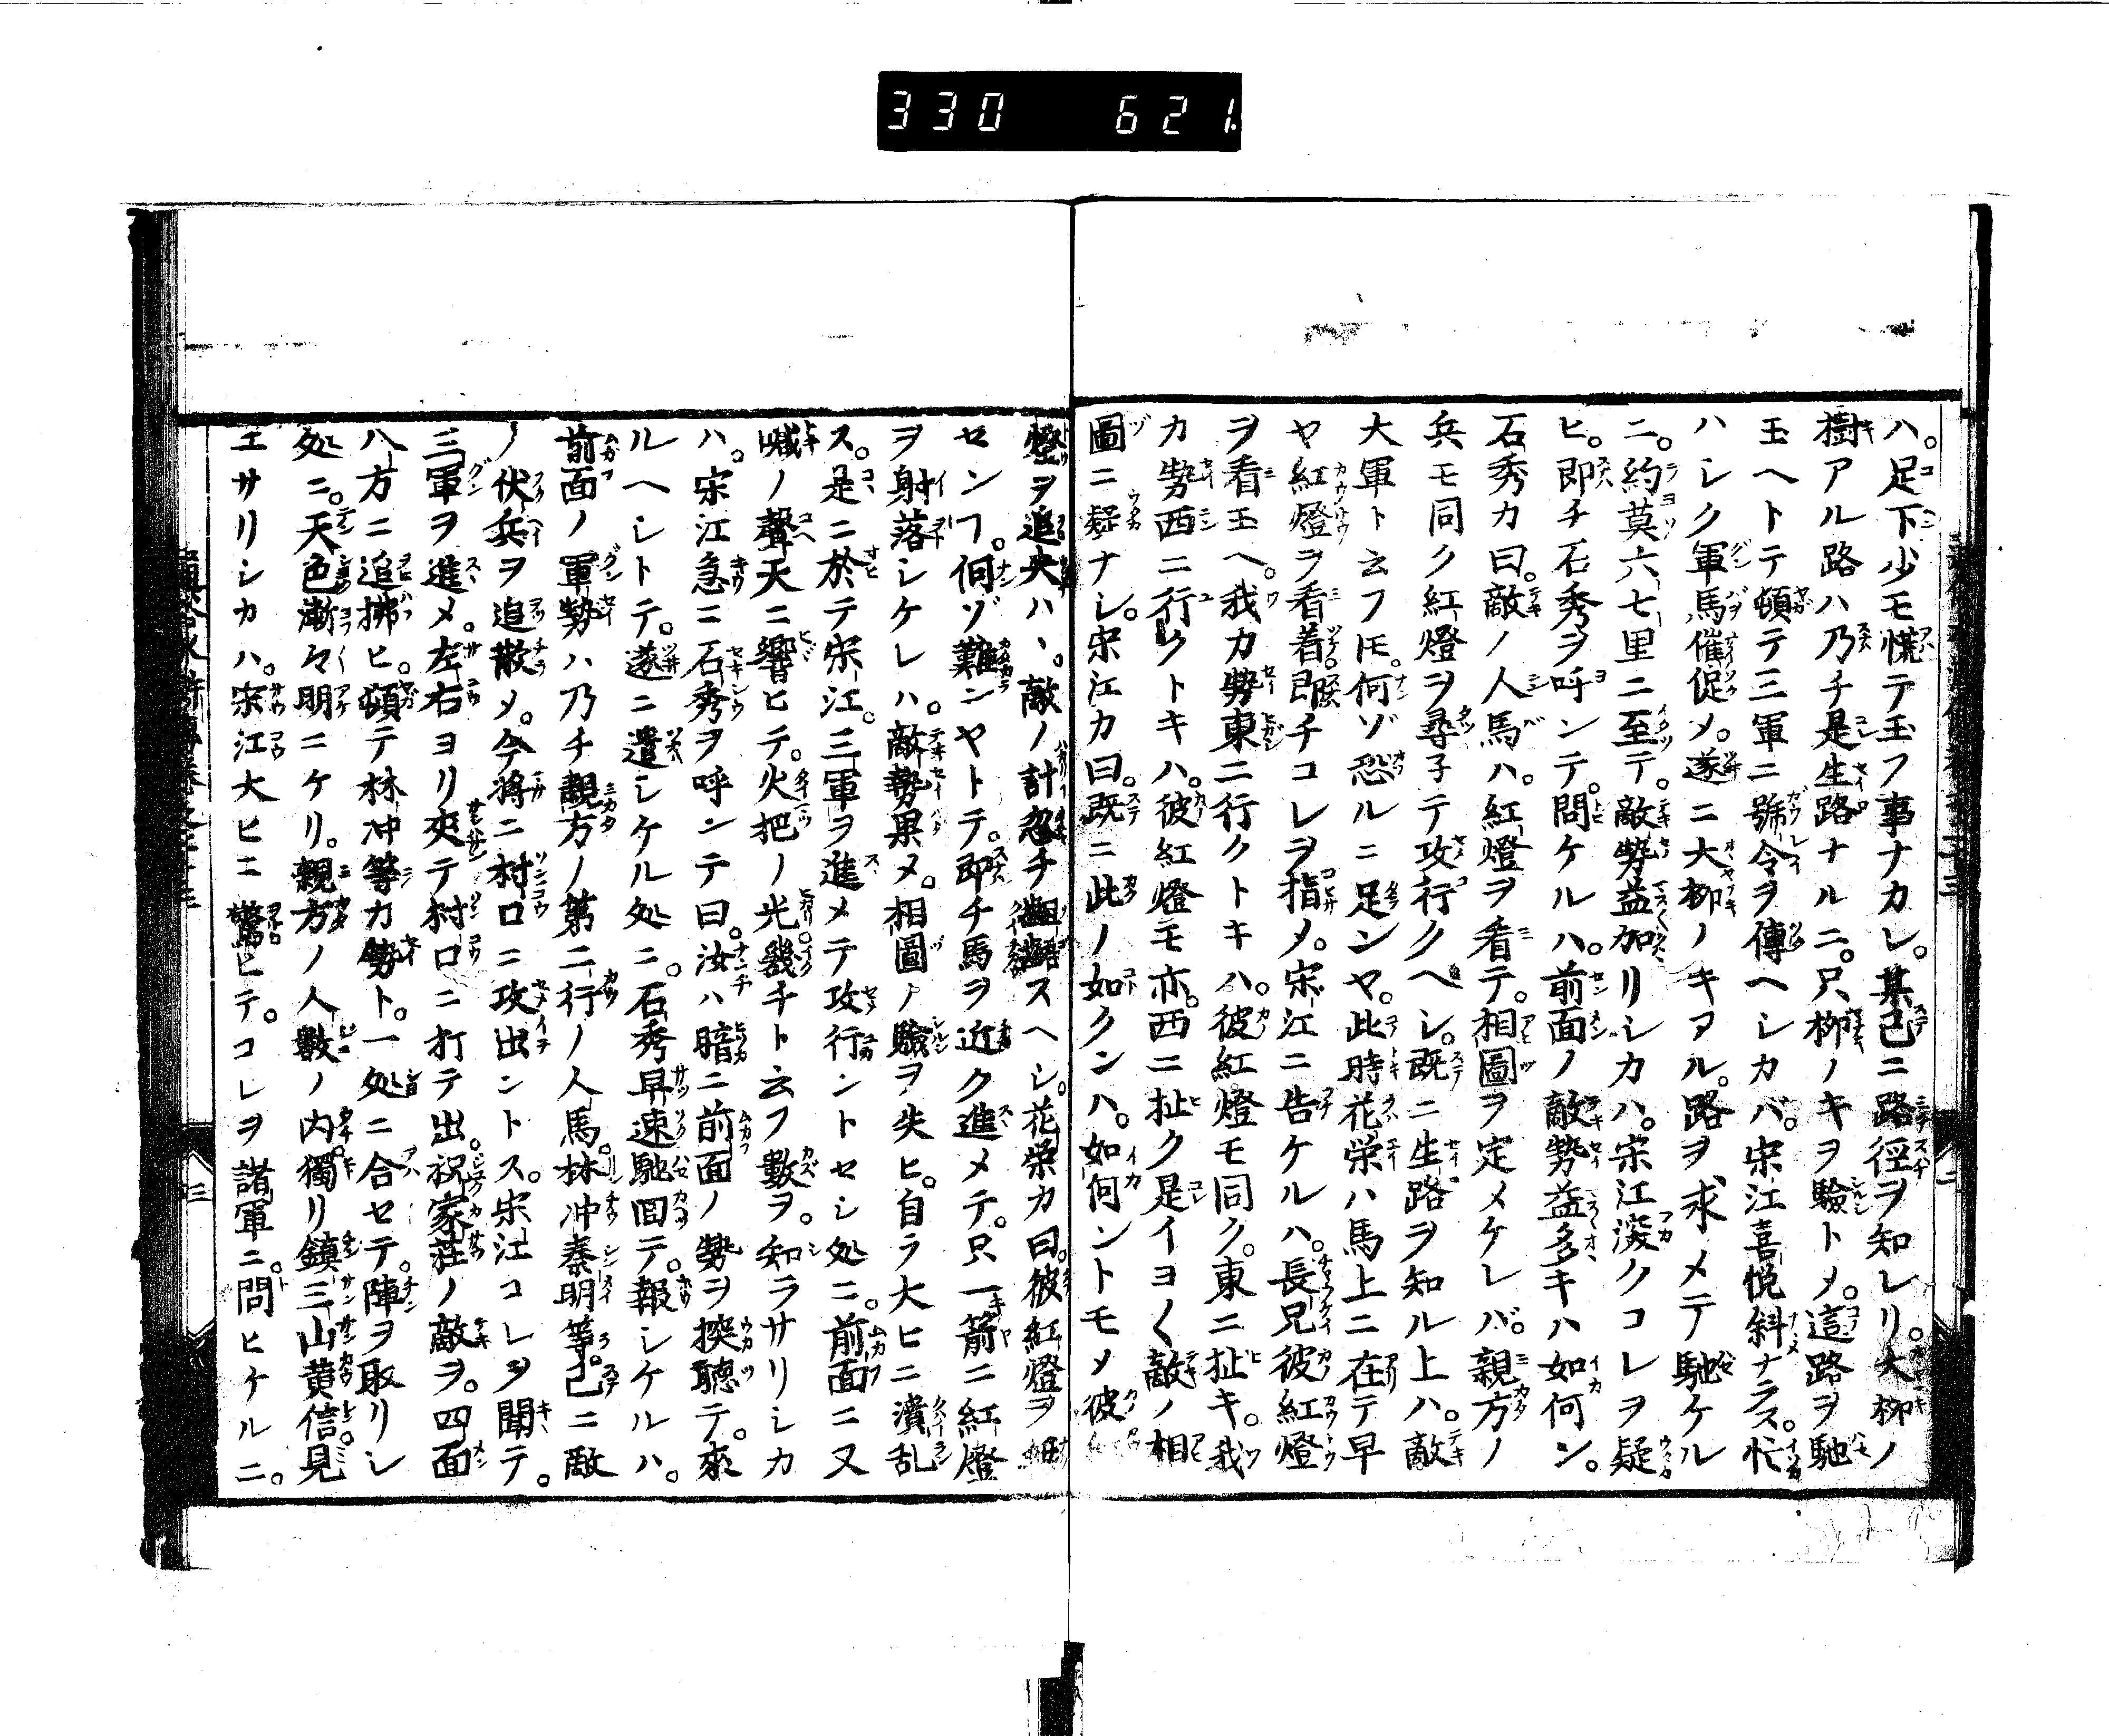 330 621.
ハ。足下少モ慌テ玉フ事ナカレ。某已ニ路徑ヲ知レリ。大柳ノ
樹アル路ハ乃チ是生路ナルニ。只柳ノキヲ驗トメ。這路ヲ馳
玉ヘトテ頓テ三軍ニ號令ヲ傳ヘシカバ。宋江喜悦斜ナラス。忙
ハシク軍馬催促メ。遂ニ大柳ノキアル。路ヲ求メテ馳ケル
ニ。約莫六七里ニ至テ。敵勢益加リシカハ。宋江深クコレヲ疑
ヒ。即チ石秀ヲ呼ンテ。問ケルハ。前面ノ敵勢益多キハ如何ン。
石秀カ曰。敵ノ人馬ハ。紅燈ヲ看テ。相圖ヲ定メケレバ。親方ノ
兵モ同ク紅燈ヲ尋子テ攻行クヘシ。既ニ生路ヲ知ル上ハ。敵
大軍ト云フ𪜈。何ゾ恐ルニ足ンヤ。此時花栄ハ馬上ニ在テ早
ヤ紅燈ヲ看着。即チコレヲ指メ。宋江ニ告ケルハ。長兄彼紅燈
ヲ看玉ヘ。我カ勢東ニ行クトキハ。彼紅燈モ同ク。東ニ扯キ。我
カ勢西ニ行クトキハ。彼紅燈モ亦。西ニ扯ク是イヨ〱敵ノ相
圖ニ疑ナシ。宋江カ曰。既ニ此ノ如クンハ。如何ントモメ彼
燈ヲ追央ハヽ。敵ノ計忽チ齟齬スヘシ。花栄カ曰。彼紅燈ヲ細
センフ。何ゾ難ンヤトテ。即チ馬ヲ近ク進メテ。只一箭ニ紅燈
ヲ射落シケレハ。敵勢果メ。相圖ノ驗ヲ失ヒ。自ラ大ヒニ潰乱
ス。是ニ於テ宋江。三軍ヲ進メテ攻行ントセシ処ニ。前面ニ又
喊ノ聲天ニ響ヒテ。火把ノ光幾千ト云フ數ヲ。知ラサリシカ
ハ。宋江急ニ石秀ヲ呼ンテ曰。汝ハ暗ニ前面ノ勢ヲ探聽テ。來
ルヘシトテ。遂ニ遣シケル処ニ。石秀早速馳回テ。報シケルハ。
前面ノ軍勢ハ乃チ親方ノ第二行ノ人馬。林冲秦明等。已ニ敵
ノ伏兵ヲ追散メ。今將ニ村口ニ攻出ントス。宋江コレヲ聞テ。
三軍ヲ進メ。左右ヨリ夾テ村口ニ打テ出。祝家莊ノ敵ヲ。四面
八方ニ追拂ヒ。頓テ林冲等カ勢ト。一処ニ合セテ。陣ヲ取リシ
処ニ。天色漸々明ニケリ。親方ノ人數ノ内。獨リ鎮三山黄信。見
エサリシカハ。宋江大ヒニ驚ヒテ。コレヲ諸軍ニ。問ヒケルニ。